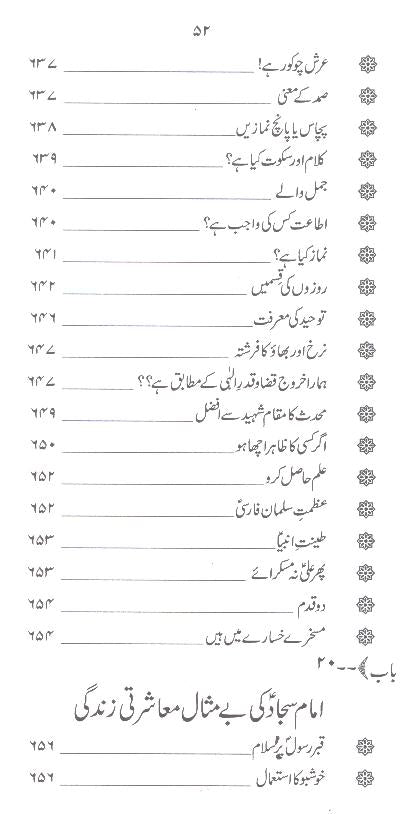 ۵۲
عرش چوکور ہے! ۶۳۷
صمد کے معنی ۶۳۷
پچاس یا پانچ نمازیں ۶۳۸
کلام اور سکوت کیا ہے؟ ۶۳۹
جمل والے ۶۴۰
اطاعت کس کی واجب ہے؟ ۶۴۰
نماز کیا ہے؟ ۶۴۱
روزوں کی قسمیں ۶۴۲
توحید کی معرفت ۶۴۶
نرخ اور بھاؤ کا فرشتہ ۶۴۷
ہمارا خروج قضا و قدرِ الٰہی کے مطابق ہے؟؟ ۶۴۷
محدث کا مقام شہید سے افضل ۶۴۹
اگر کسی کا ظاہر اچھا ہو ۶۵۰
علم حاصل کرو ۶۵۲
عظمتِ سلمان فارسیؑ ۶۵۲
طینتِ انبیاؑ ۶۵۳
پھر علیؑ نہ مسکرائے ۶۵۳
دو قدم ۶۵۴
مسخرے خسارے میں ہیں ۶۵۴
باب ﴾--۲۰
امام سجادؑ کی بے مثال معاشرتی زندگی
قبر رسولؐ پر سلام ۶۵۶
خوشبو کا استعمال ۶۵۶